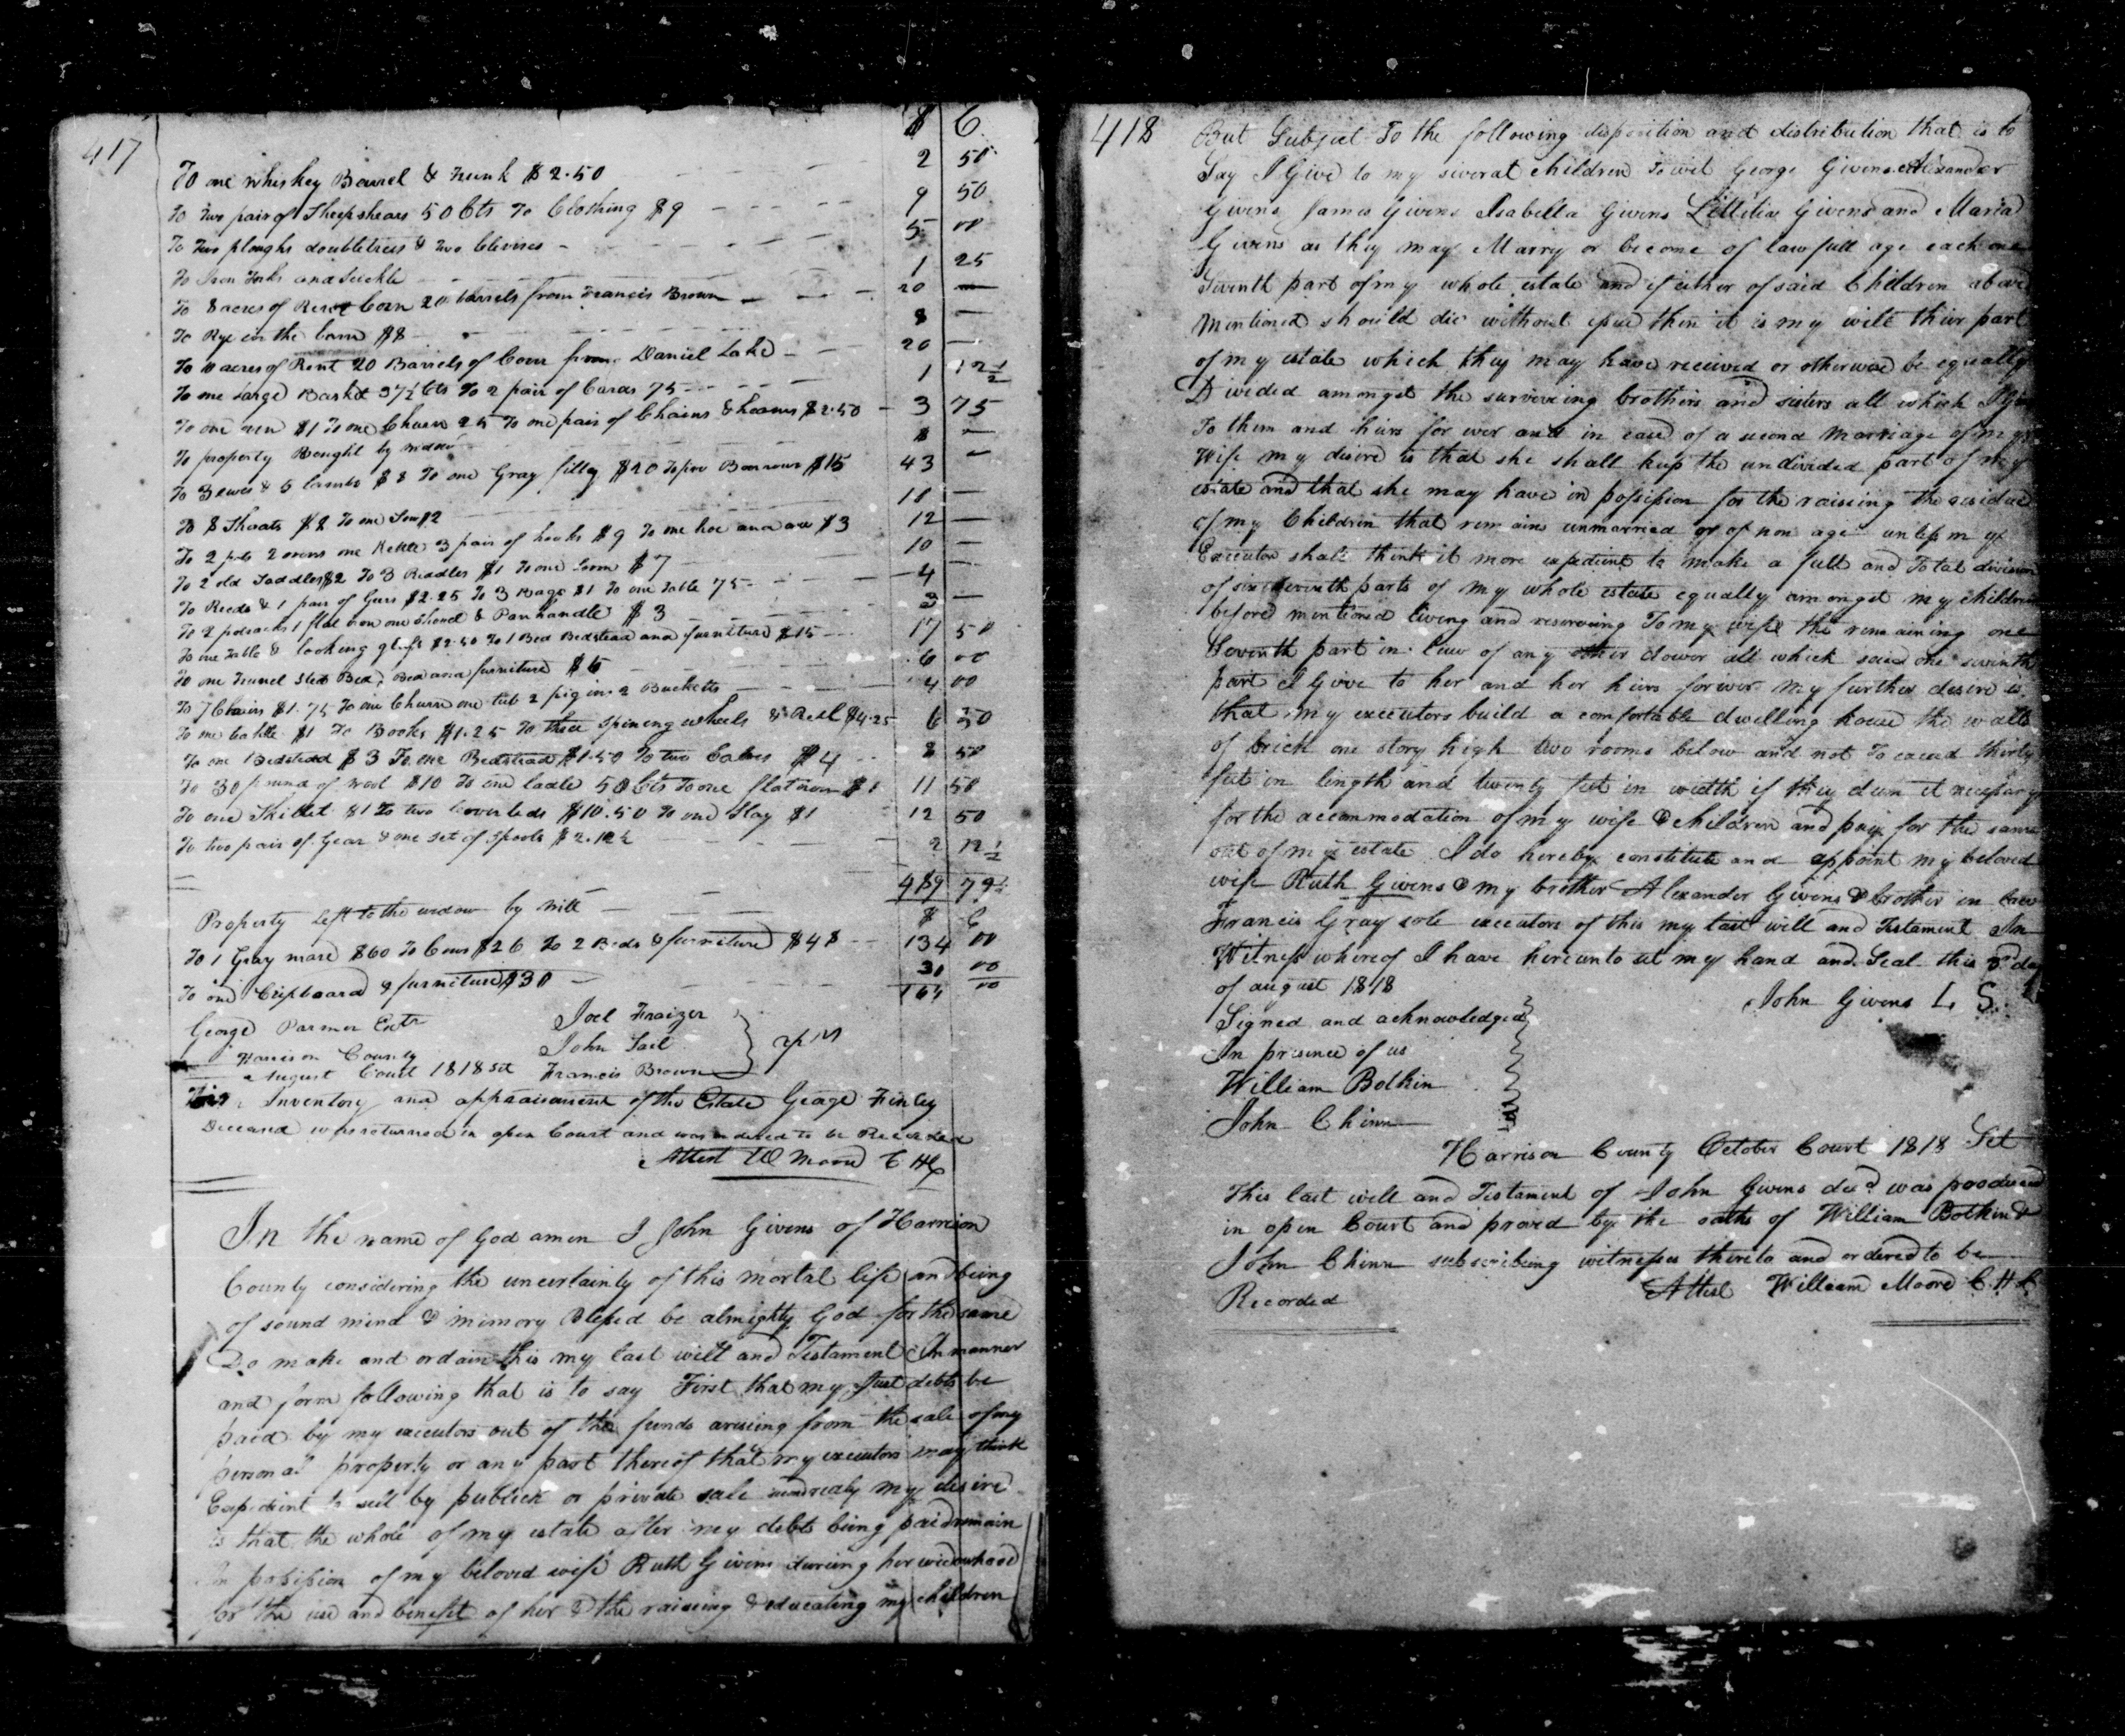 417
$ C
To one whiskey Barrel & Trunk $2.50 2 50
To two pair of Sheepshears 50 Cts To Clothing $9 9 50
To two ploughs doubletrees & two Clevises 5 00
To Iron Forks and Sickle 1 25
To 8 acres of Rent Corn 20 barrels from Francis Brown 20 —
To Rye in the barn $8 8 —
To 10 acres of Rent 20 Barrels of Corn from Daniel Lake 20 —
To one large Basket 37½ Cts To 2 pair of Cards 75 1 12½
To one $1 To one Churn 25 To one pair of Chains & hames $2.50 3 75
To property Bought by widow $ —
To 3 ewes & 5 lambs $8 To one Gray filly $20 To four Barrows $15 43 —
To 8 Shoats $8 To one Sow $2 10 —
To 2 pots 2 ovens one Kettle 3 pair of hooks $9 To one hoe and axe $3 12 —
To 2 old Saddles $2 To 3 Riddles $1 To one Loom $7 10 —
To Reeds & 1 pair of Gears $2.25 To 3 Bags $1 To one table 75 4 —
To 2 potracks 1 flat iron one Shovel & Panhandle $3 3 —
To one Table & looking glass $2.50 To 1 Bed Bedstead and furniture $15 17 50
To one Trunel Sted Bed, Bed and furniture $6 6 00
To 7 Chairs $1.75 To one Churn one tub 2 pigins 2 Bucketts 4 00
To one Cattle $1 To Books $1.25 To three spining wheels & Reel $4.25 6 50
To one Bedstead $3 To one Bedstead $1.50 To two Calves $4 8 50
To 30 pound of wool $10 To one ladle 50 Cts To one flat iron $1 11 50
To one Skillet $1 To two Coverleds $10.50 To one Slay $1 12 50
To two pair of Gear & one set of Spools $2.12½ 2 12½
489 79½
Property left to the widow by will $ C
To 1 Gray mare $60 To Cows $26 To 2 Beds & furniture $48 134 00
To one Cupboard & furniture $30 30 00
164 00
George Parmer Extr Joel Fraizer
John Lail
Harrison County
August Court 1818 Sct Francis Brown
This Inventory and appraisament of the Estate George Finley
Deceased was returned in open Court and was ordered to be Recorded
Attest W Moore C H C
In the name of God amen I John Givens of Harrison
County considering the uncertainty of this mortal life and being
of sound mind & mimory Blessed be almighty God for the same
Do make and ordain this my last will and Testament In manner
and form following that is to say First that my Just debts be
paid by my executors out of the funds ariseing from the sale of my
personal property or any part thereof that my executors may think
Expedient to sell by publick or private sale secondly my desire
is that the whole of my estate after my debts being paid remain
In possission of my beloved wife Ruth Givens dureing her widowhood
for the use and benefit of her & the raiseing & educating my children
418
But Subject To the following disposition and distribution that is to
Say I Give to my siveral children Towit George Givens Alexander
Givens James Givens Isabella Givens Littitia Givens and Maria
Givens as they may Marry or become of lawfull age each one
Seventh part of my whole estate and if either of said Children above
mentioned should die without issue then it is my will their part
of my estate which they may have received or otherwise be equally
Divided amongst the surviveing brothers and sisters all which I give
To them and heirs for ever and in case of a second Marriage of my
Wife my desire is that she shall keep the undivided part of my
estate and that she may have in possission for the raiseing the residue
of my Children that remains unmarried or of non age unless my
Executors shall think it more expedient to make a full and Total division
of six seventh parts of my whole estate equally amongst my children
before mentioned liveing and reserveing To my wife the remaining one
Seventh part in lieu of any other dower all which said one seventh
part I Give to her and her heirs forever my further desire is
that my executors build a comfortable dwelling house the walls
of brick one story high two rooms below and not To exceed thirty
feet in length and twenty feet in width if they deem it necessary
for the accommodation of my wife & children and pay for the same
out of my estate I do hereby constitute and appoint my beloved
wife Ruth Givens & my brother Alexander Givens & brother in law
Francis Gray sole executors of this my last will and Testament In
Witness whereof I have hereunto set my hand and Seal this 3d day
of august 1818
John Givens L S
Signed and acknowledged
In presence of us
William Botkin
John Chinn
Harrison County October Court 1818 Sct
This last will and Testament of John Givens decd was produced
in open Court and proved by the oaths of William Botkin &
John Chinn subscribing witnesses thereto and ordered to be
Recorded Attest William Moore C. H. C